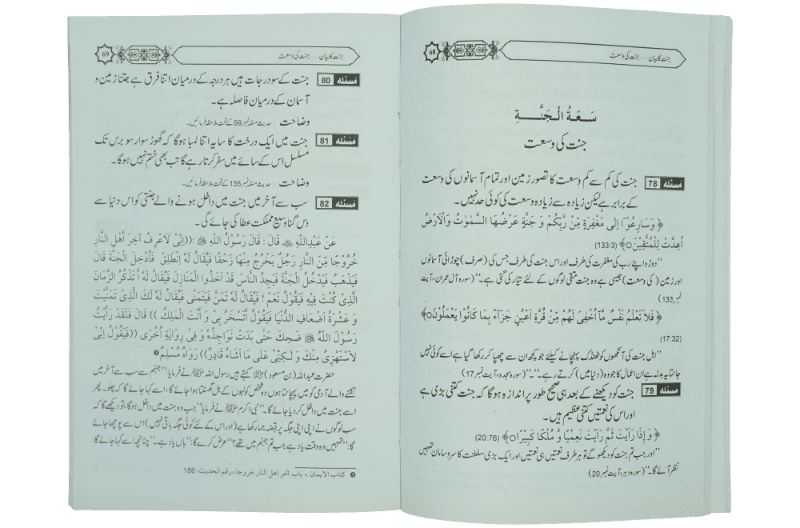 جنت کا بیان ... جنت کی وسعت
68
سَعَةُ الْجَنَّةِ
جنت کی وسعت
مسئلہ 78 جنت کی کم سے کم وسعت کا تصور زمین اور تمام آسمانوں کی وسعت
کے برابر ہے لیکن زیادہ سے زیادہ وسعت کی کوئی حد نہیں۔
﴿ وَسَارِعُوْٓا اِلٰی مَغْفِرَةٍ مِّنْ رَّبِّكُمْ وَ جَنَّةٍ عَرْضُهَا السَّمٰوٰتُ وَالْاَرْضُ
اُعِدَّتْ لِلْمُتَّقِیْنَ ﴾ (133:3)
"دوڑو اپنے رب کی مغفرت کی طرف اور اس جنت کی طرف جس کی (صرف) چوڑائی آسمانوں
اور زمین (کی وسعت) جیسی ہے وہ جنت متقی لوگوں کے لئے تیار کی گئی ہے۔" (سورہ آل عمران، آیت
نمبر 133)
﴿ فَلَا تَعْلَمُ نَفْسٌ مَّآ اُخْفِیَ لَهُمْ مِّنْ قُرَّةِ اَعْیُنٍ جَزَآءًۢ بِمَا كَانُوْا یَعْمَلُوْنَ ﴾
(17:32)
"اہل جنت کی آنکھوں کو ٹھنڈک پہنچانے کیلئے جو کچھ ان سے چھپا کر رکھا گیا ہے اسے کوئی نہیں
جانتا یہ بدلہ ہے ان اعمال کا جو وہ (دنیا میں) کرتے رہے۔" (سورہ سجدہ، آیت نمبر 17)
مسئلہ 79 جنت کو دیکھنے کے بعد ہی صحیح طور پر اندازہ ہوگا کہ جنت کتنی بڑی ہے
اور اس کی نعمتیں کتنی عظیم ہیں۔
﴿ وَاِذَا رَاَیْتَ ثَمَّ رَاَیْتَ نَعِیْمًا وَّ مُلْكًا كَبِیْرًا ﴾ (20:76)
"اور جب تم جنت کو دیکھو گے تو ہر طرف نعمتیں ہی نعمتیں اور ایک بڑی سلطنت کا سروسامان تمہیں
نظر آئے گا۔" (سورہ دہر، آیت نمبر 20)
جنت کا بیان ... جنت کی وسعت
69
مسئلہ 80 جنت کے سو درجات ہیں ہر درجہ کے درمیان اتنا فرق ہے جتنا زمین و
آسمان کے درمیان فاصلہ ہے۔
وضاحت حدیث مسئلہ نمبر 99 کے تحت ملاحظہ فرمائیں۔
مسئلہ 81 جنت میں ایک درخت کا سایہ اتنا لمبا ہوگا کہ گھوڑ سوار سو برس تک
مسلسل اس کے سائے میں سفر کرتا رہے گا تب بھی ختم نہیں ہوگا۔
وضاحت حدیث مسئلہ نمبر 135 کے تحت ملاحظہ فرمائیں۔
مسئلہ 82 سب سے آخر میں جنت میں داخل ہونے والے جنتی کو اس دنیا سے
دس گنا وسیع مملکت عطا کی جائے گی۔
عَنْ عَبْدِاللّٰهِ ﷜ قَالَ : قَالَ رَسُوْلُ اللّٰهِ ﷺ ((اِنِّیْ لَاَعْرِفُ آخِرَ اَهْلِ النَّارِ
خُرُوْجًا مِنَ النَّارِ رَجُلٌ یَخْرُجُ مِنْهَا زَحْفًا فَیُقَالُ لَهُ اِنْطَلِقْ فَادْخُلِ الْجَنَّةَ قَالَ
فَیَذْهَبُ فَیَدْخُلُ الْجَنَّةَ فَیَجِدُ النَّاسَ قَدْ اَخَذُوا الْمَنَازِلَ فَیُقَالُ لَهُ اَتَذْكُرُ الزَّمَانَ
الَّذِیْ كُنْتَ فِیْهِ فَیَقُوْلُ نَعَمْ ! فَیُقَالُ لَهُ تَمَنَّ فَیَتَمَنّٰی فَیُقَالُ لَهُ لَكَ الَّذِیْ تَمَنَّیْتَ
وَ عَشْرَةُ اَضْعَافِ الدُّنْیَا فَیَقُوْلُ اَتَسْخَرُ بِیْ وَ اَنْتَ الْمَلِكُ )) قَالَ فَلَقَدْ رَاَیْتُ
رَسُوْلَ اللّٰهِ ﷺ ضَحِكَ حَتّٰی بَدَتْ نَوَاجِذُهُ وَ فِیْ رِوَایَةٍ اُخْرٰی ((فَیَقُوْلُ اِنِّیْ
لَا اَسْتَهْزِئُ مِنْكَ وَ لٰكِنِّیْ عَلٰی مَا اَشَاءُ قَادِرٌ)) رَوَاهُ مُسْلِمٌ
حضرت عبداللہ (بن مسعود) ﷜ کہتے ہیں رسول اللہ ﷺ نے فرمایا "جہنم سے سب سے آخر میں
نکلنے والے آدمی کو میں پہچانتا ہوں وہ شخص کولہوں کے بل گھسٹتا ہوا جائے گا، اسے کہا جائے گا کہ چلو۔ پھر
اسے جنت میں داخل کر دیا جائے گا۔" نبی اکرم ﷺ نے فرمایا "جب وہ جنت میں داخل ہوگا، تو دیکھے گا کہ
سب لوگوں نے اپنی اپنی جگہ پر قبضہ جما رکھا ہے (اور اس کے لئے کوئی جگہ باقی نہیں) اس سے پوچھا جائے
گا: "تمہیں وہ وقت یاد ہے جب تم جہنم میں تھے؟" عرض کرے گا: "ہاں یاد ہے۔" چنانچہ اسے کہا جائے گا
کتاب الایمان ، باب آخر اهل النار خروجا ، رقم الحدیث: 186